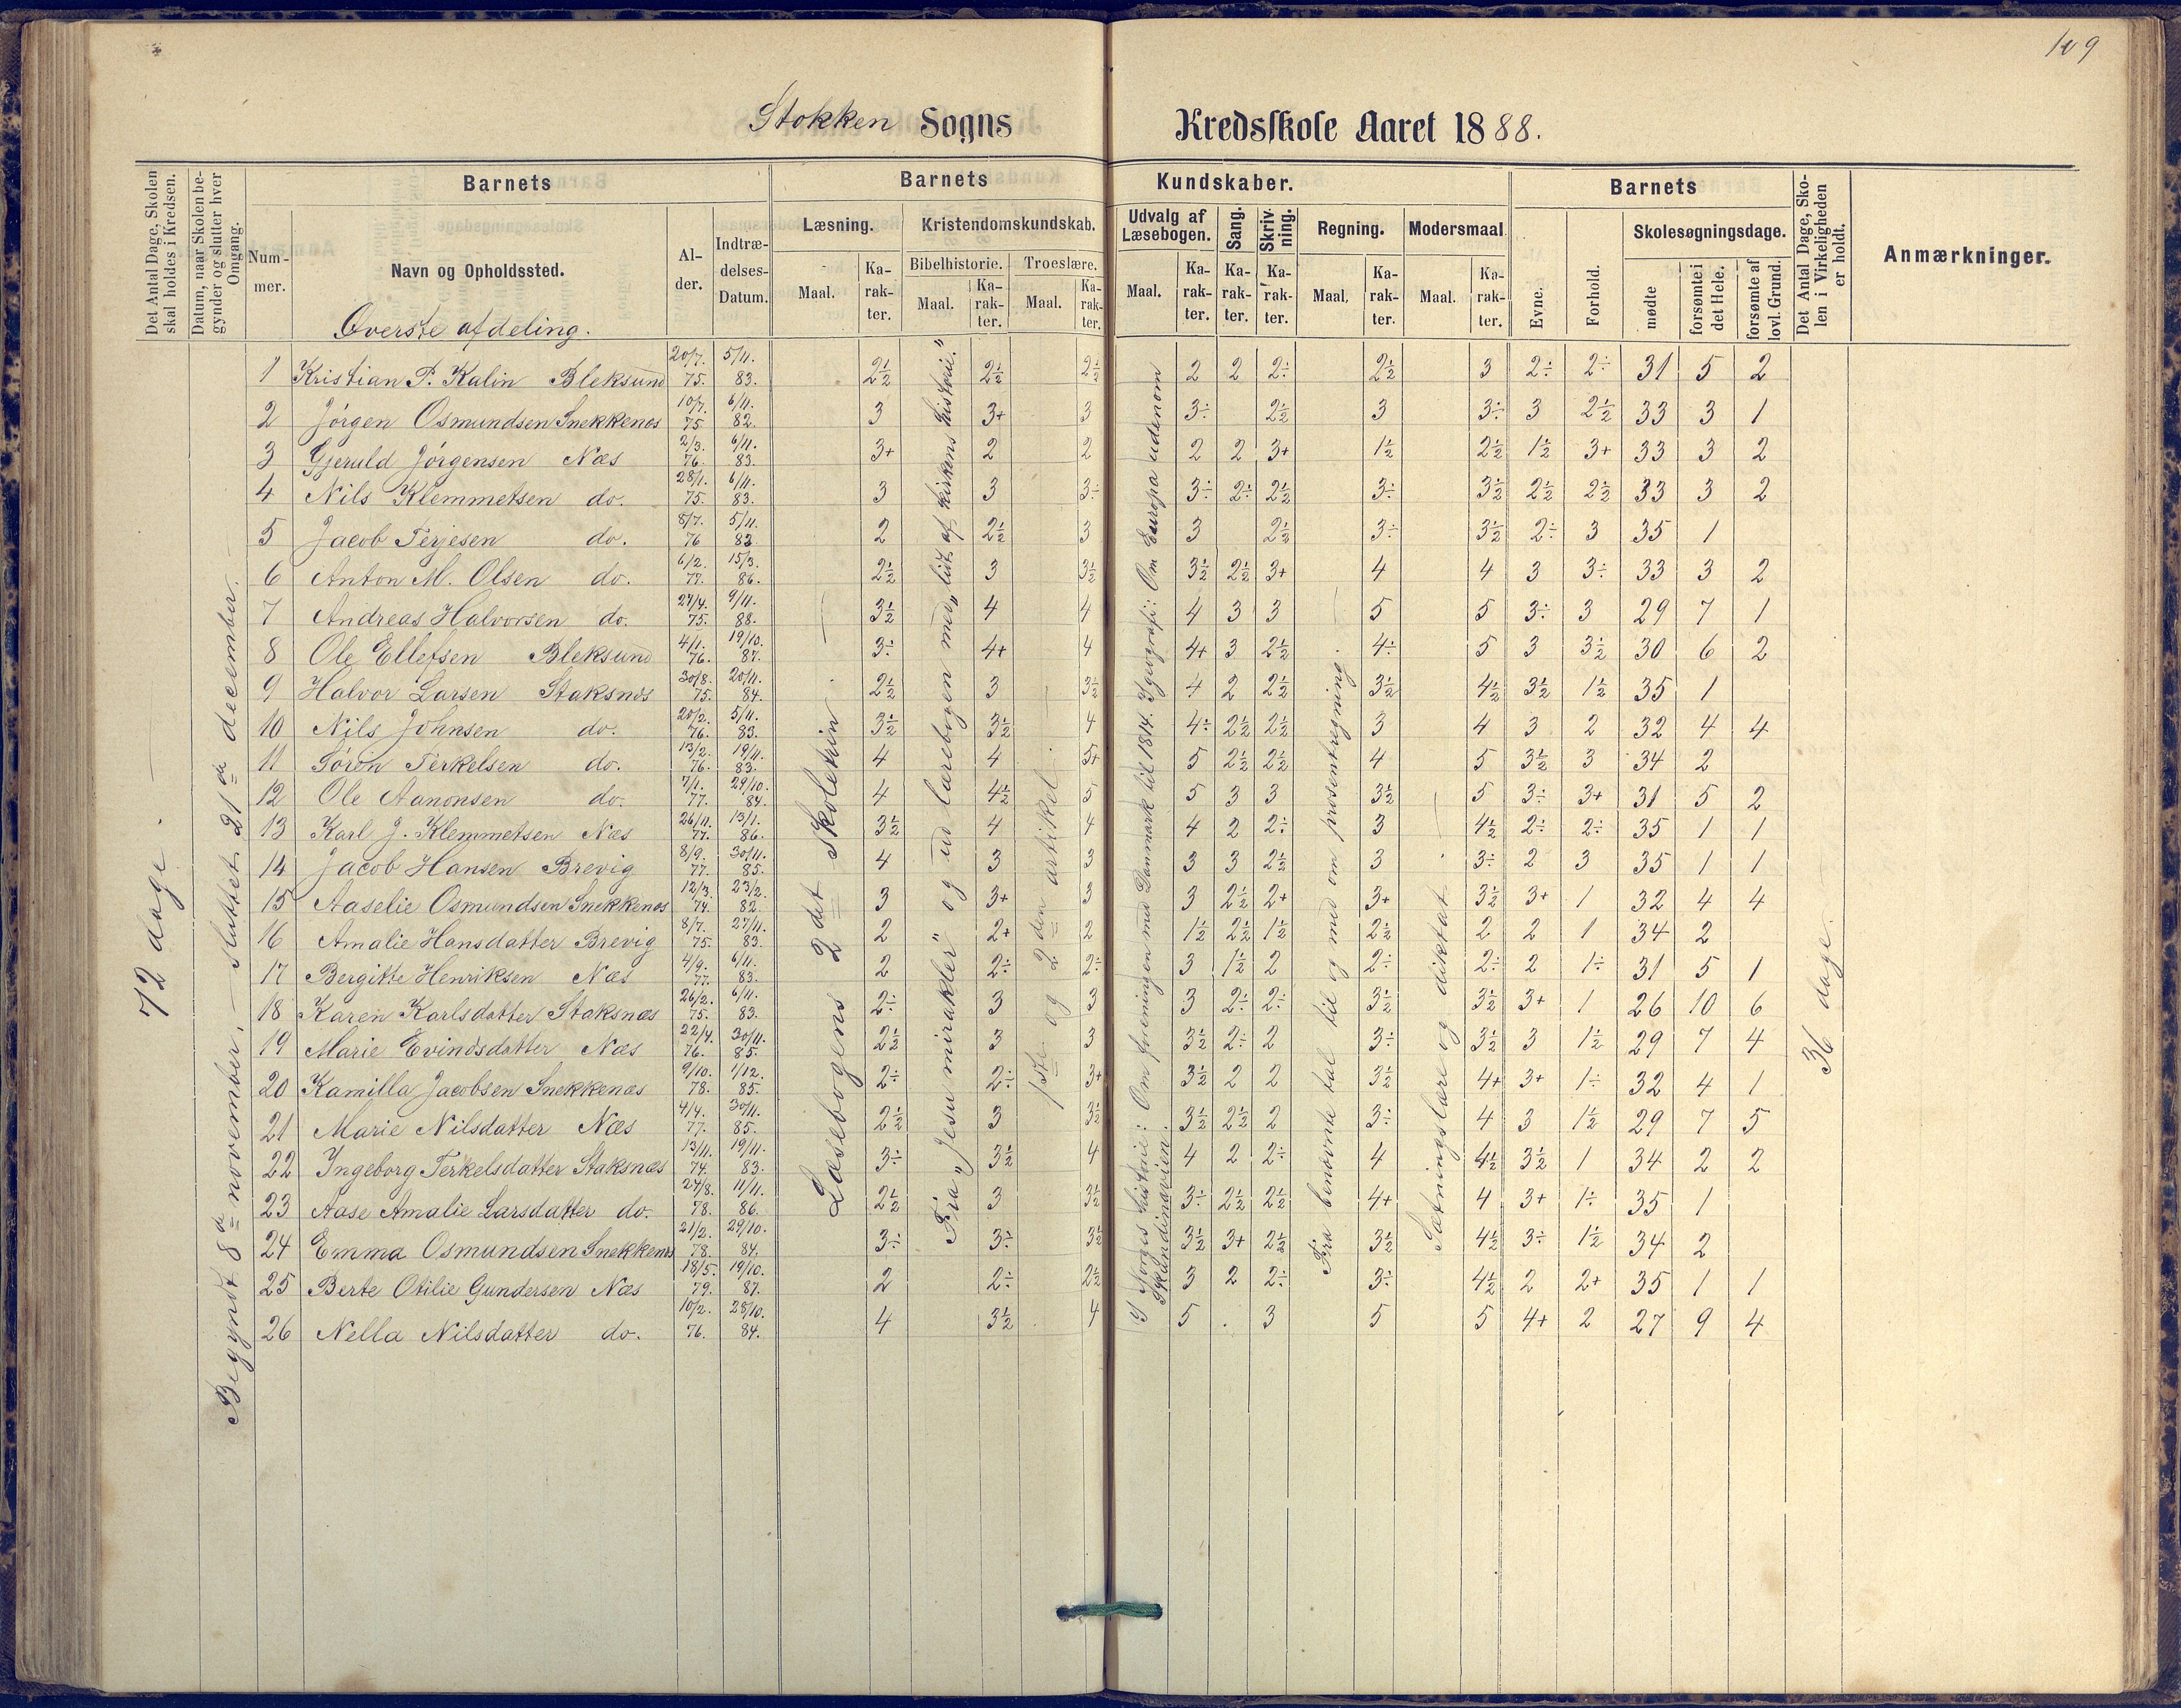 109
Stokken Sogns Kredsskole Aaret 1888.
Det Antal Dage, Skolen skal holdes i Kredsen.
Datum, naar Skolen begynder og slutter hver Omgang.
Barnets
Barnets Kundskaber.
Barnets
Det Antal Dage, Skolen i Virkeligheden er holdt.
Anmærkninger.
Nummer.
Navn og Opholdssted.
Alder.
Indtrædelses-Datum.
Læsning.
Kristendomskundskab.
Udvalg af Læsebogen.
Sang.
Skrivning.
Regning.
Modersmaal
Skolesøgningsdage.
Bibelhistorie.
Troeslære.
Maal.
Karakter.
Maal.
Karakter.
Maal.
Karakter.
Maal.
Karakter.
Karakter.
Karakter.
Maal.
Karakter.
Maal.
Karakter.
Evne.
Forhold.
mødte
forsømte i det Hele.
forsømte af lovl. Grund.
Øverste afdeling.
72 dage.
Begyndt 8de november. – Sluttet 21de december.
Læsebogens 2det skoletrin.
Fra „Jesu mirakler" og ud lærebogen med „lidt af kirkens historie."
1ste og 2den artikel.
I Norges historie: Om foreningen med Danmark til 1814. I geografi: Om Europa udenom Skandinavien.
Fra benævnte tal til og med om prosentregning.
Sætningslære og diktat.
36 dage.
1 Kristian P. Kalin Bleksund 20/7. 75. 5/11. 83. 2½ 2½ 2½ 2 2 2÷ 2½ 3 2÷ 2÷ 31 5 2
2 Jørgen Osmundsen Snekkenes 10/7. 75 6/11. 82. 3 3+ 3 3÷ 2½ 3 3÷ 3 2½ 33 3 1
3 Gjeruld Jørgensen Næs 2/3. 76. 6/11. 83. 3+ 2 2 2 2 3+ 1½ 2½ 1½ 3+ 33 3 2
4 Nils Klemmetsen do. 28/1. 75. 6/11. 83. 3 3 3÷ 3÷ 2÷ 2½ 3÷ 3½ 2½ 2½ 33 3 2
5 Jacob Terjesen do. 8/7. 76 5/11. 83. 2 2½ 3 3 2½ 3÷ 3½ 2÷ 3 35 1
6 Anton M. Olsen do. 6/2. 77. 15/3. 86. 2½ 3 3½ 3½ 2½ 3+ 4 4 3 3÷ 33 3 2
7 Andreas Halvorsen do. 27/4. 75. 9/11. 88. 3½ 4 4 4 3 3 5 5 3÷ 3 29 7 1
8 Ole Ellefsen Bleksund 4/1. 76. 19/10. 87. 3÷ 4+ 4 4+ 3 2½ 4÷ 5 3 3½ 30 6 2
9 Halvor Larsen Staksnes 30/8. 75. 20/11. 84. 2½ 3 3½ 4 2 2½ 3½ 4½ 3½ 1½ 35 1
10 Nils Johnsen do. 20/2. 76. 5/11. 83. 3½ 3½ 4 4÷ 2½ 2½ 3 4 3 2 32 4 4
11 Søren Terkelsen do. 13/2. 76. 19/11. 83. 4 4 5+ 5 2½ 2½ 4 5 3½ 3 34 2
12 Ole Aanonsen do. 7/1. 77. 29/10. 84. 4 4½ 5 5 3 3 3½ 5 3÷ 3+ 31 5 2
13 Karl J. Klemmetsen Næs 26/11. 77. 13/1. 86. 3½ 4 4 4 2 2÷ 3 4½ 2÷ 2÷ 35 1 1
14 Jacob Hansen Brevig 8/9. 77. 30/11. 85. 4 3 3 3 3 2½ 3 3÷ 2 3 35 1 1
15 Aaselie Osmundsen Snekkenes 12/3. 74. 23/2. 82. 3 3+ 3 3 2½ 2+ 3+ 3½ 3+ 1 32 4 4
16 Amalie Hansdatter Brevig 8/7. 75. 27/11. 83. 2 2+ 2 1½ 2½ 1½ 2½ 2 2 1 34 2
17 Bergitte Henriksen Næs 4/9. 77. 6/11. 83. 2 2÷ 2÷ 3 1½ 2 2÷ 2÷ 2 1÷ 31 5 1
18 Karen Karlsdatter Staksnæs 26/2. 75. 6/11. 83. 2÷ 3 3 3 2÷ 2÷ 3½ 3½ 3+ 1 26 10 6
19 Marie Evindsdatter Næs 22/4. 76. 30/11. 85. 2½ 3 3 3½ 2÷ 2 3÷ 3½ 3 1½ 29 7 4
20 Kamilla Jacobsen Snekkenæs 9/10. 78. 1/12. 85. 2÷ 2÷ 3+ 3½ 2 2 3½ 4+ 3+ 1÷ 32 4 1
21 Marie Nilsdatter Næs 4/4. 77. 30/11. 85. 2½ 3 3½ 3½ 2½ 2 3÷ 4 3 1½ 29 7 5
22 Ingeborg Terkelsdatter Staksnæs 13/11. 74. 19/11. 83. 3÷ 3½ 4 4 2 2÷ 4 4½ 3½ 1 34 2 2
23 Aase Amalie Larsdatter do. 24/8. 78. 11/11. 86. 2½ 3 3½ 3÷ 2½ 2½ 4+ 4 3+ 1÷ 35 1
24 Emma Osmundsen Snekkenes 21/2. 78. 29/10. 84. 3÷ 3÷ 3½ 3½ 3+ 2½ 3½ 4½ 3÷ 1½ 34 2
25 Berte Otilie Gundersen Næs 18/5. 79. 19/10. 87. 2 2÷ 2½ 3 2 2÷ 3÷ 4½ 2 2+ 35 1 1
26 Nella Nilsdatter do. 10/2. 76. 28/10. 84. 4 3½ 4 5 . 3 5 5 4+ 2 27 9 4